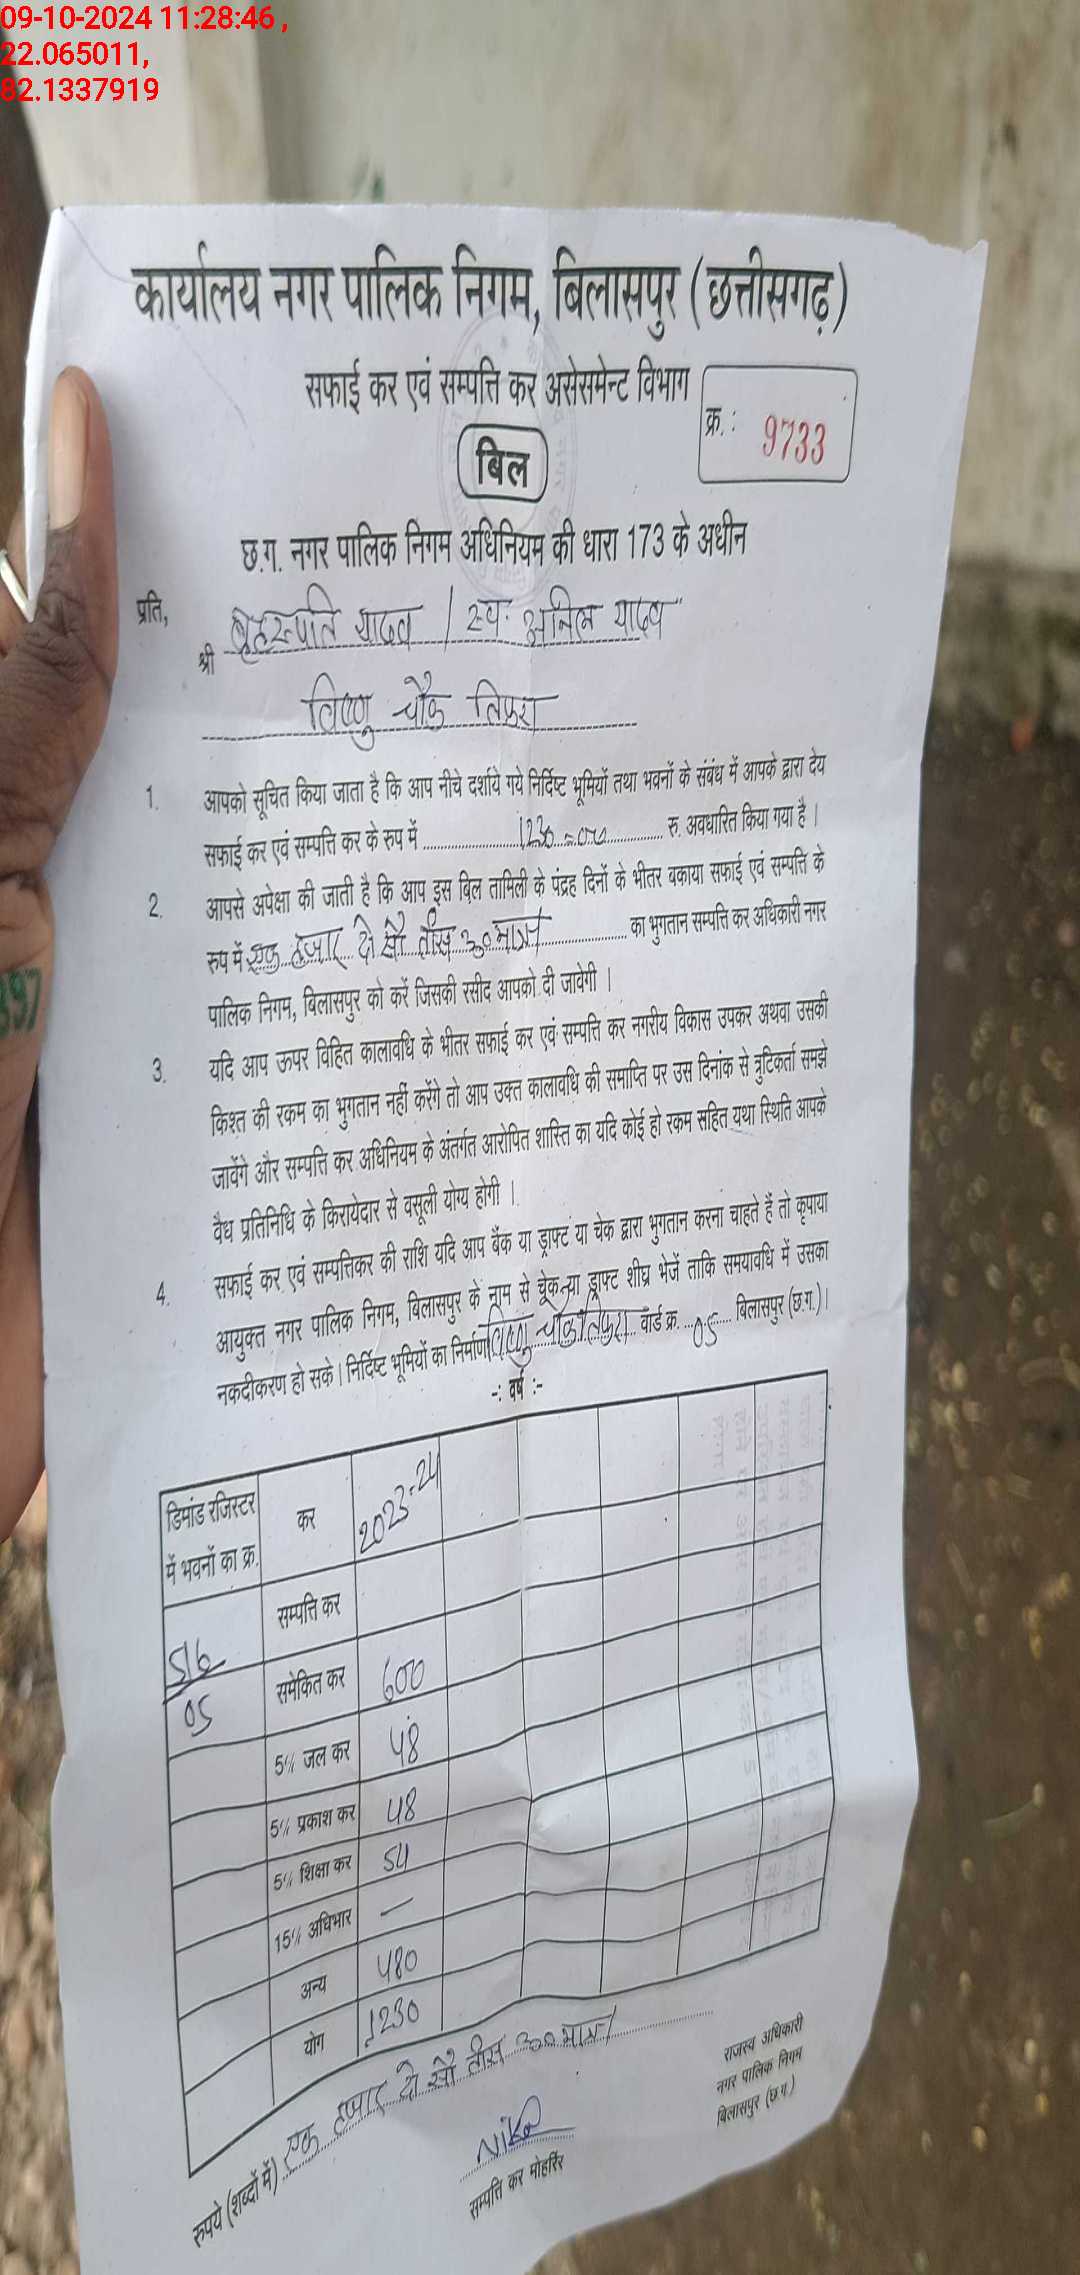 09-10-2024 11:28:46 ,
22.065011,
82.1337919
कार्यालय नगर पालिक निगम, बिलासपुर (छत्तीसगढ़)
सफाई कर एवं सम्पत्ति कर असेसमेन्ट विभाग
क्र. : 9733
बिल
छ.ग. नगर पालिक निगम अधिनियम की धारा 173 के अधीन
प्रति,
श्री बृहस्पति यादव / स्व. अनिल यादव
विष्णु चौक तिफरा
1. आपको सूचित किया जाता है कि आप नीचे दर्शाये गये निर्दिष्ट भूमियों तथा भवनों के संबंध में आपके द्वारा देय
सफाई कर एवं सम्पत्ति कर के रुप में 1230=00 रु. अवधारित किया गया है ।
2. आपसे अपेक्षा की जाती है कि आप इस बिल तामिली के पंद्रह दिनों के भीतर बकाया सफाई एवं सम्पत्ति के
रुप में एक हजार दो सौ तीस रू० मात्र का भुगतान सम्पत्ति कर अधिकारी नगर
पालिक निगम, बिलासपुर को करें जिसकी रसीद आपको दी जावेगी ।
3. यदि आप ऊपर विहित कालावधि के भीतर सफाई कर एवं सम्पत्ति कर नगरीय विकास उपकर अथवा उसकी
किश्त की रकम का भुगतान नहीं करेंगे तो आप उक्त कालावधि की समाप्ति पर उस दिनांक से त्रुटिकर्ता समझे
जावेंगे और सम्पत्ति कर अधिनियम के अंतर्गत आरोपित शास्ति का यदि कोई हो रकम सहित यथा स्थिति आपके
वैध प्रतिनिधि के किरायेदार से वसूली योग्य होगी ।
4. सफाई कर एवं सम्पत्तिकर की राशि यदि आप बैंक या ड्राफ्ट या चेक द्वारा भुगतान करना चाहते हैं तो कृपाया
आयुक्त नगर पालिक निगम, बिलासपुर के नाम से चेक या ड्राफ्ट शीघ्र भेजें ताकि समयावधि में उसका
नकदीकरण हो सके । निर्दिष्ट भूमियों का निर्माण विष्णु चौक तिफरा वार्ड क्र. 05 बिलासपुर (छ.ग.)।
-: वर्ष :-
डिमांड रजिस्टर में भवनों का क्र. कर 2023-24
सम्पत्ति कर
516/05 समेकित कर 600
5% जल कर 48
5% प्रकाश कर 48
5% शिक्षा कर 54
15% अधिभार —
अन्य 480
योग 1230
रुपये (शब्दों में) एक हजार दो सौ तीस रू० मात्र
सम्पत्ति कर मोहर्रिर
राजस्व अधिकारी
नगर पालिक निगम
बिलासपुर (छ.ग.)